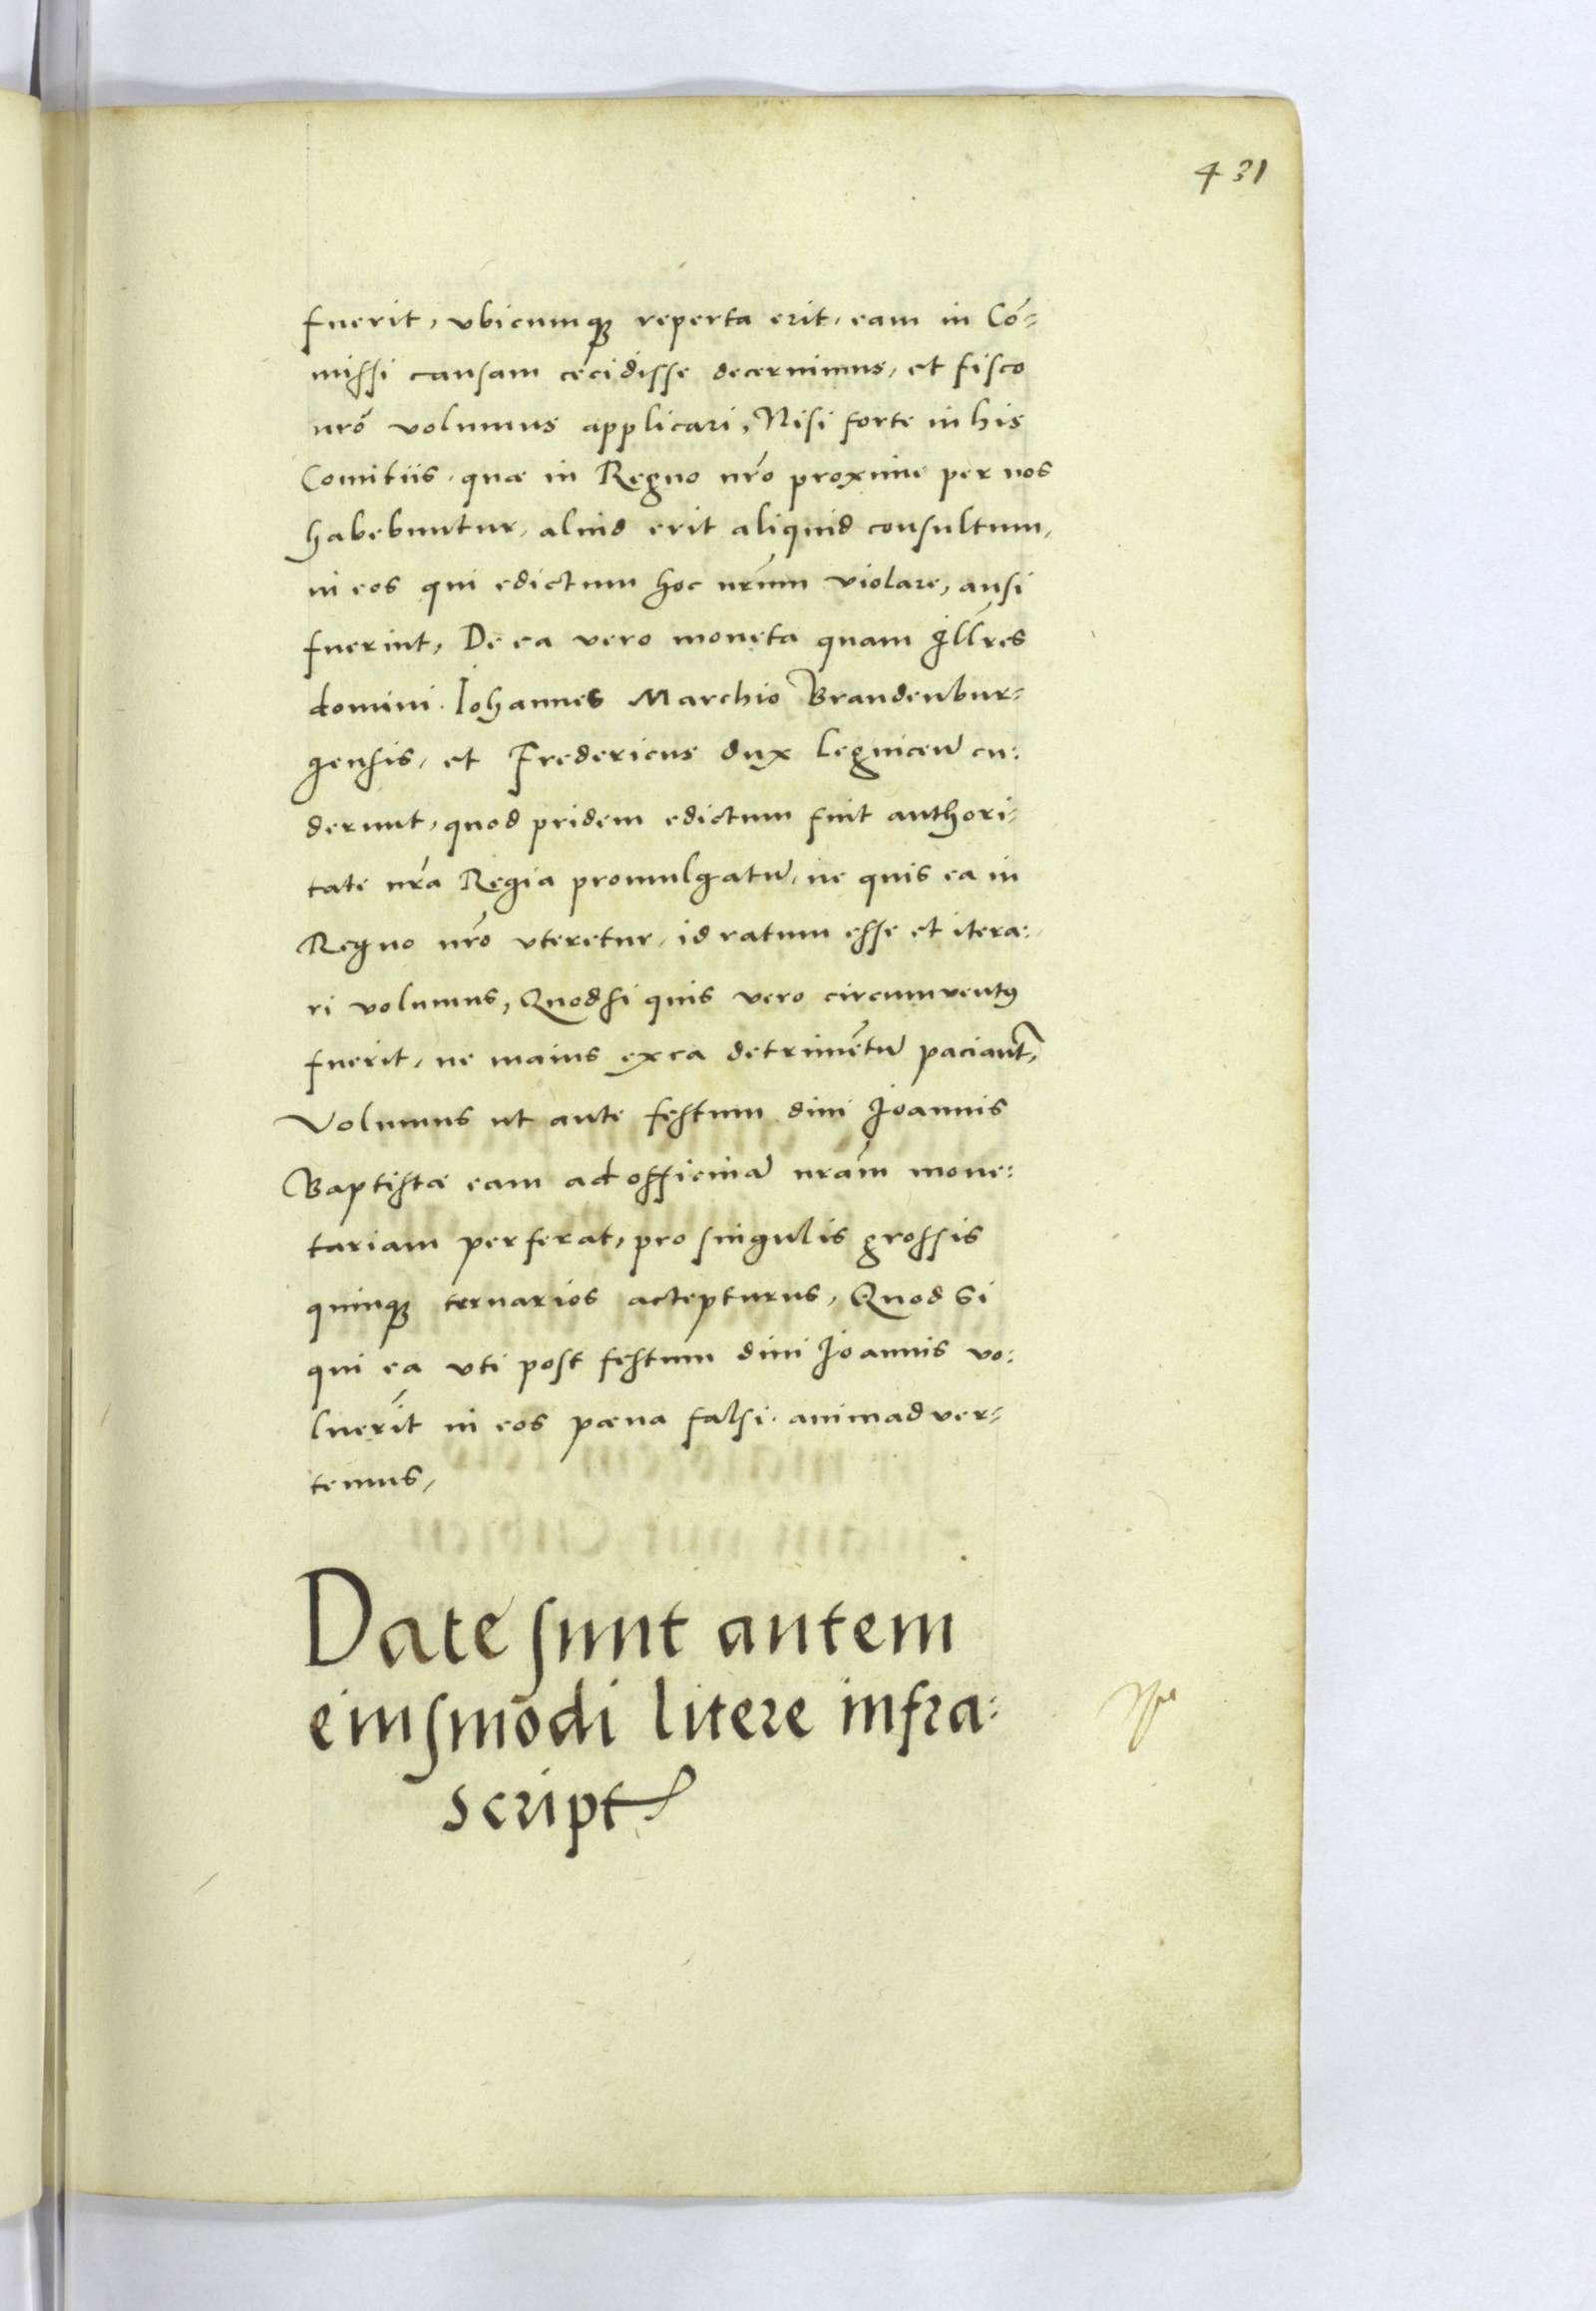 431
fuerit, vbicumq3 reperta erit, eam in Cō-
missi causam cecidisse decernimus, et fisco
nr̄o volumus applicari, Nisi forte in his
Comitiis, quæ in Regno nr̄o proxime per nos
habebuntur, aliud erit aliquid consultum,
in eos qui edictum hoc nr̄um violare, ausi
fuerint, De ea vero moneta quam Ill̄res
domini Iohannes Marchio Brandenbur-
gensis, et Fredericus dux Legnicen̄ cu:
derunt, quod pridem edictum fuit authori-
tate nr̄a Regia promulgatū, ne quis ea in
Regno nr̄o vteretur, id ratum esse et itera-
ri volumus, Quodsi quis vero circumventꝰ
fuerit, ne maius ex ea detrimētū paciant̄,
Volumus ut ante festum diui Joannis
Baptistæ eam ad officinā nr̄am mone:
tariam perferat, pro singulis grossis
quinq3 ternarios accepturus, Quod si
qui ea vti post festum diui Joannis vo:
luerīt in eos pœna falsi animadver-
temus,
Date sunt autem
eiusmodi litere infra:
script